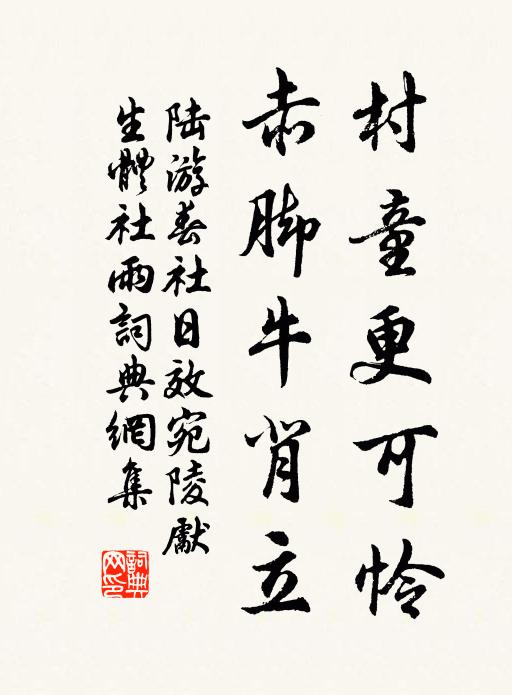 村童更可怜
赤脚牛背立
陆游春社日效宛陵獻
生體社雨詞典網集
詞典网印